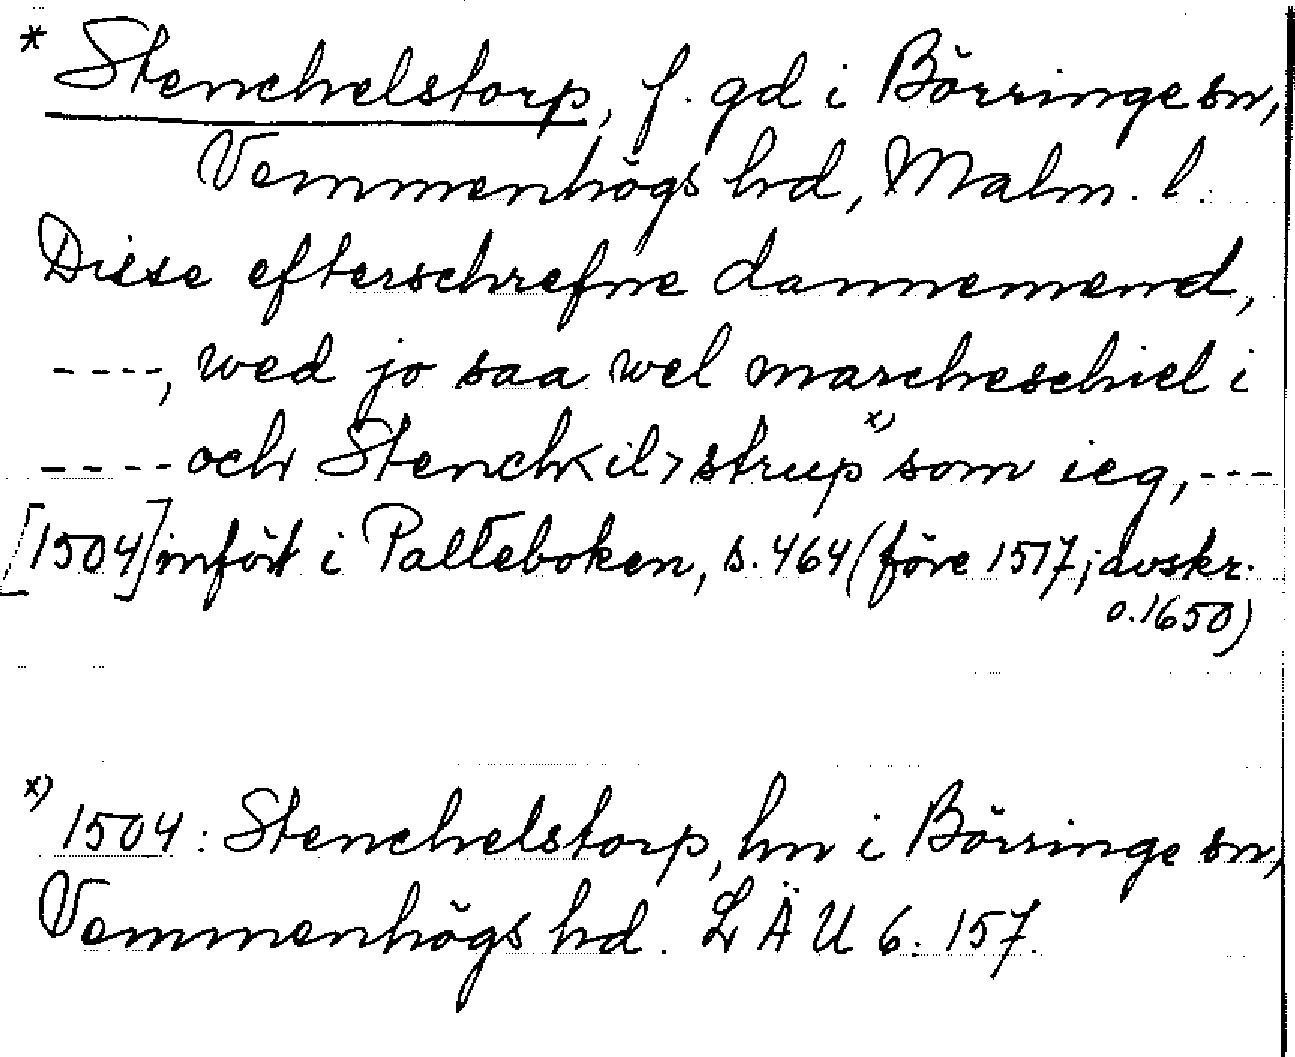 * Stenchelstorp, f. gd i Börringe sn,
Vemmenhögs hd, Malm. l.
Disse efterschrefne dannemend,
----, wed jo saa wel marcheschiel i
---- och Stench<il>strup x) som ieg, ---
[1504] infört i Palteboken, s. 464 (före 1517; avskr.
o. 1650)
x) 1504: Stenchelstorp, hn i Börringe sn,
Vemmenhögs hd. LÄU 6: 157.